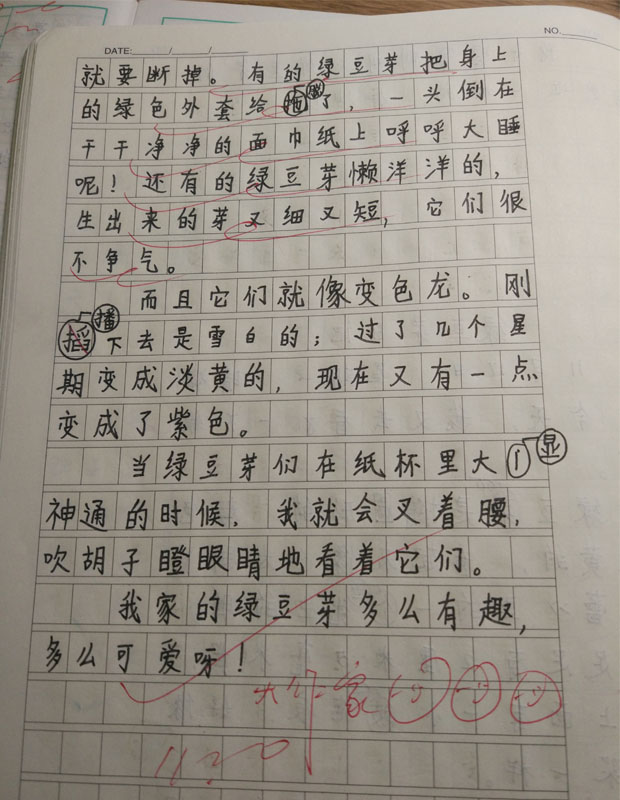 DATE: / / NO.
就要断掉。有的绿豆芽把身上
的绿色外套给脱了，一头倒在
干干净净的面巾纸上呼呼大睡
呢！还有的绿豆芽懒洋洋的，
生出来的芽又细又短，它们很
不争气。
而且它们就像变色龙。刚
播下去是雪白的；过了几个星
期变成淡黄的，现在又有一点
变成了紫色。
当绿豆芽们在纸杯里大显
神通的时候，我就会叉着腰，
吹胡子瞪眼睛地看着它们。
我家的绿豆芽多么有趣，
多么可爱呀！
大作家